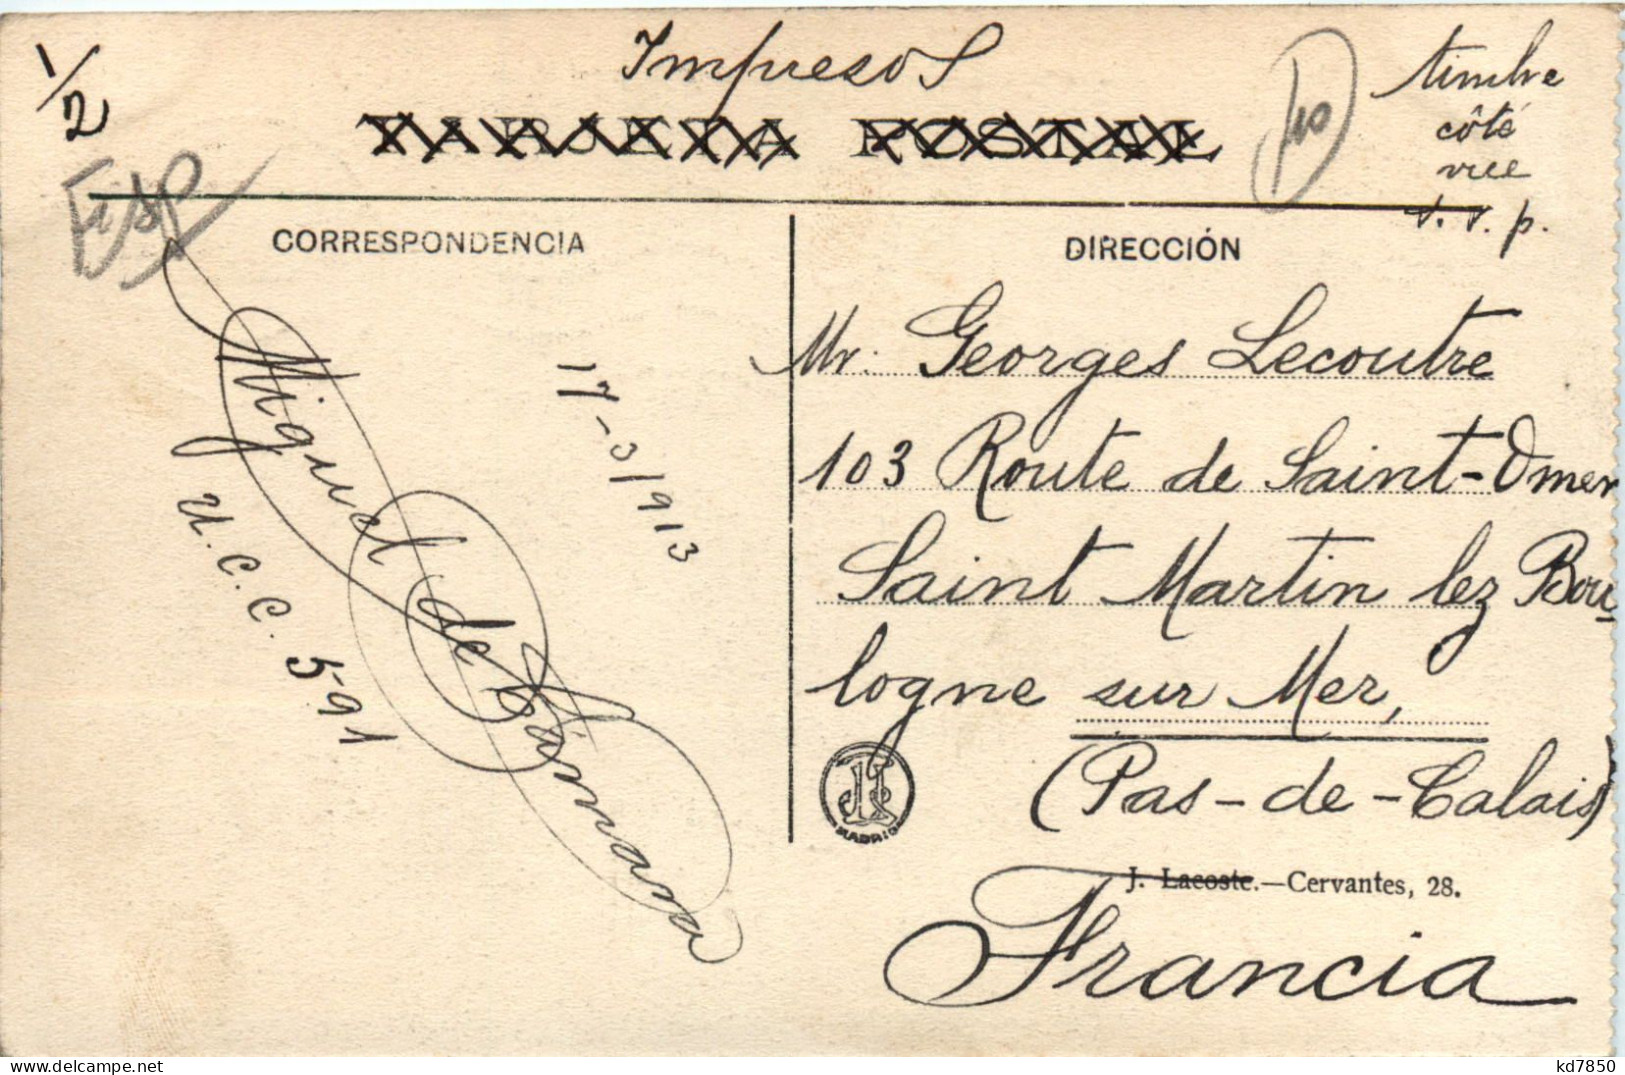 1/2
Impresos
TARJETA POSTAL
10
timbre
côté
vue
t. s. p.
Esp
CORRESPONDENCIA
DIRECCIÓN
17-3/913
Miguel de Cámara
U.C.C. 591
Mr. Georges Lecoutre
103 Route de Saint-Omer
Saint Martin lez Bou-
logne sur Mer,
(Pas-de-Calais)
Francia
MADRID
J. Lacoste.—Cervantes, 28.
kd7850